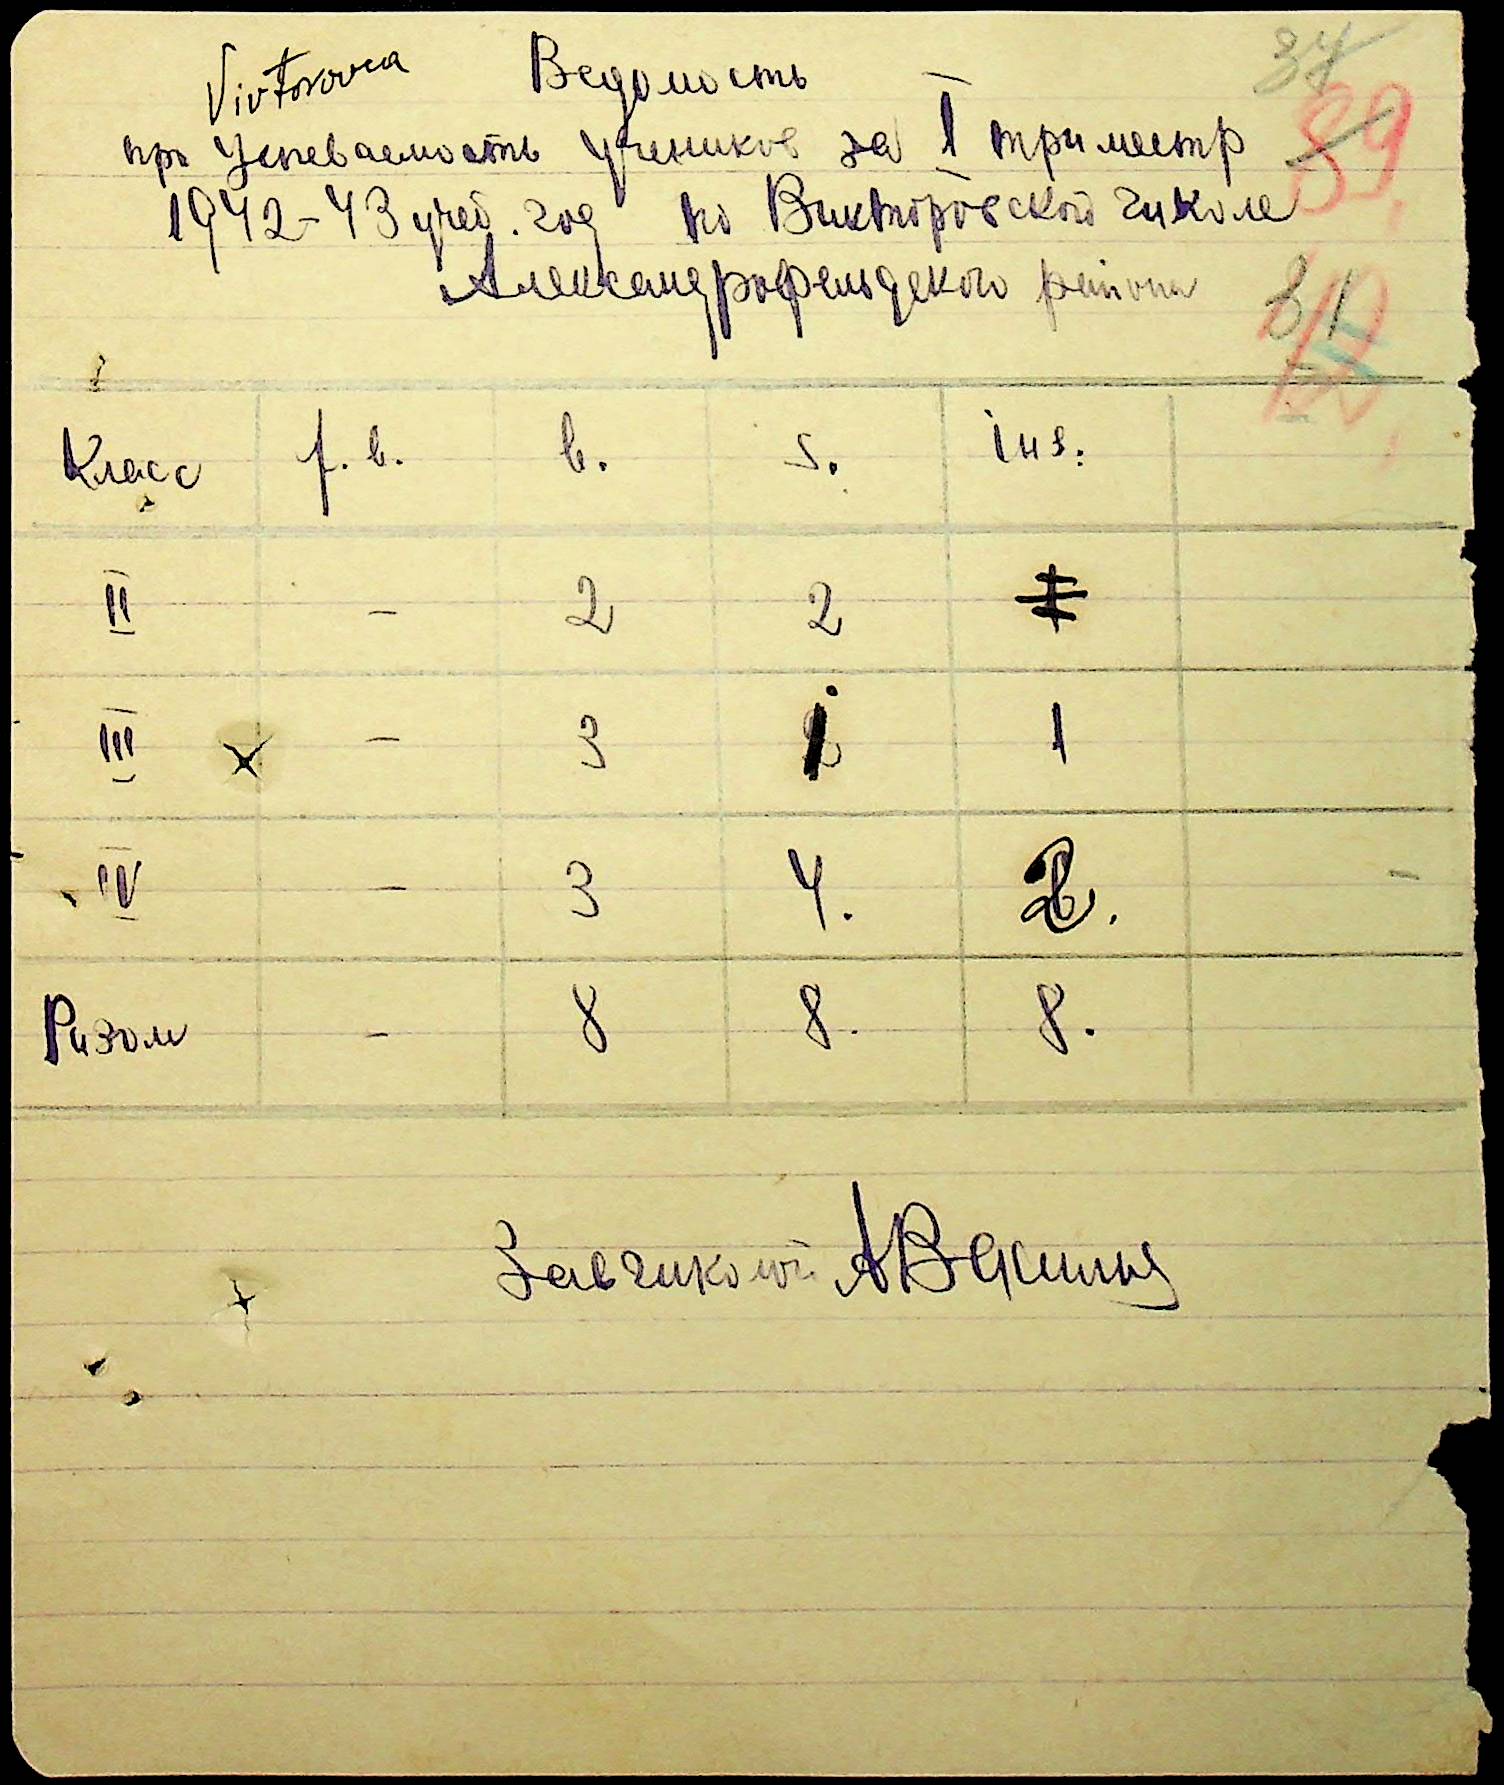 Victorovca
Ведомость
про успеваемость учеников за I триместр
1942-43 учеб. год по Викторовской школе
Александрофельдского района
37
39
81
Класс f. b. b. s. inз.
II - 2 2
III - 3 1
IV - 3 4. 2.
Разом - 8 8. 8.
Завшколой